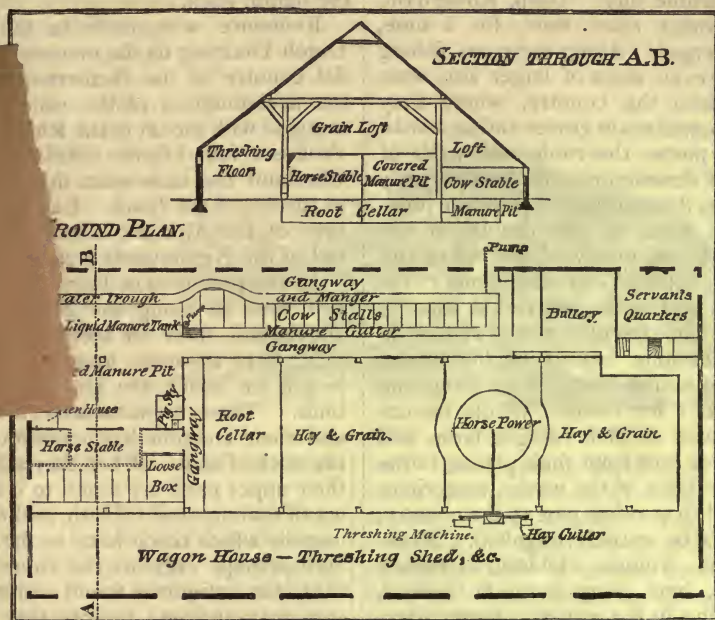 SECTION THROUGH A.B.
Grain Loft
Threshing
Floor
Loft
Horse Stable
Covered
Manure Pit
Cow Stable
Root Cellar
Manure Pit
ROUND PLAN.
B
Pump
Gangway
and Manger
ater trough
Cow Stalls
Liquid Manure Tank
Pump
Manure Gutter
Gangway
Buttery
Servants
Quarters
ed Manure Pit
Pig Sty
en House
Horse Stable
Loose
Box
Gangway
Root
Cellar
Hay & Grain.
Horse Power
Hay & Grain.
Threshing Machine.
Hay Cutter
Wagon House — Threshing Shed, &c.
A